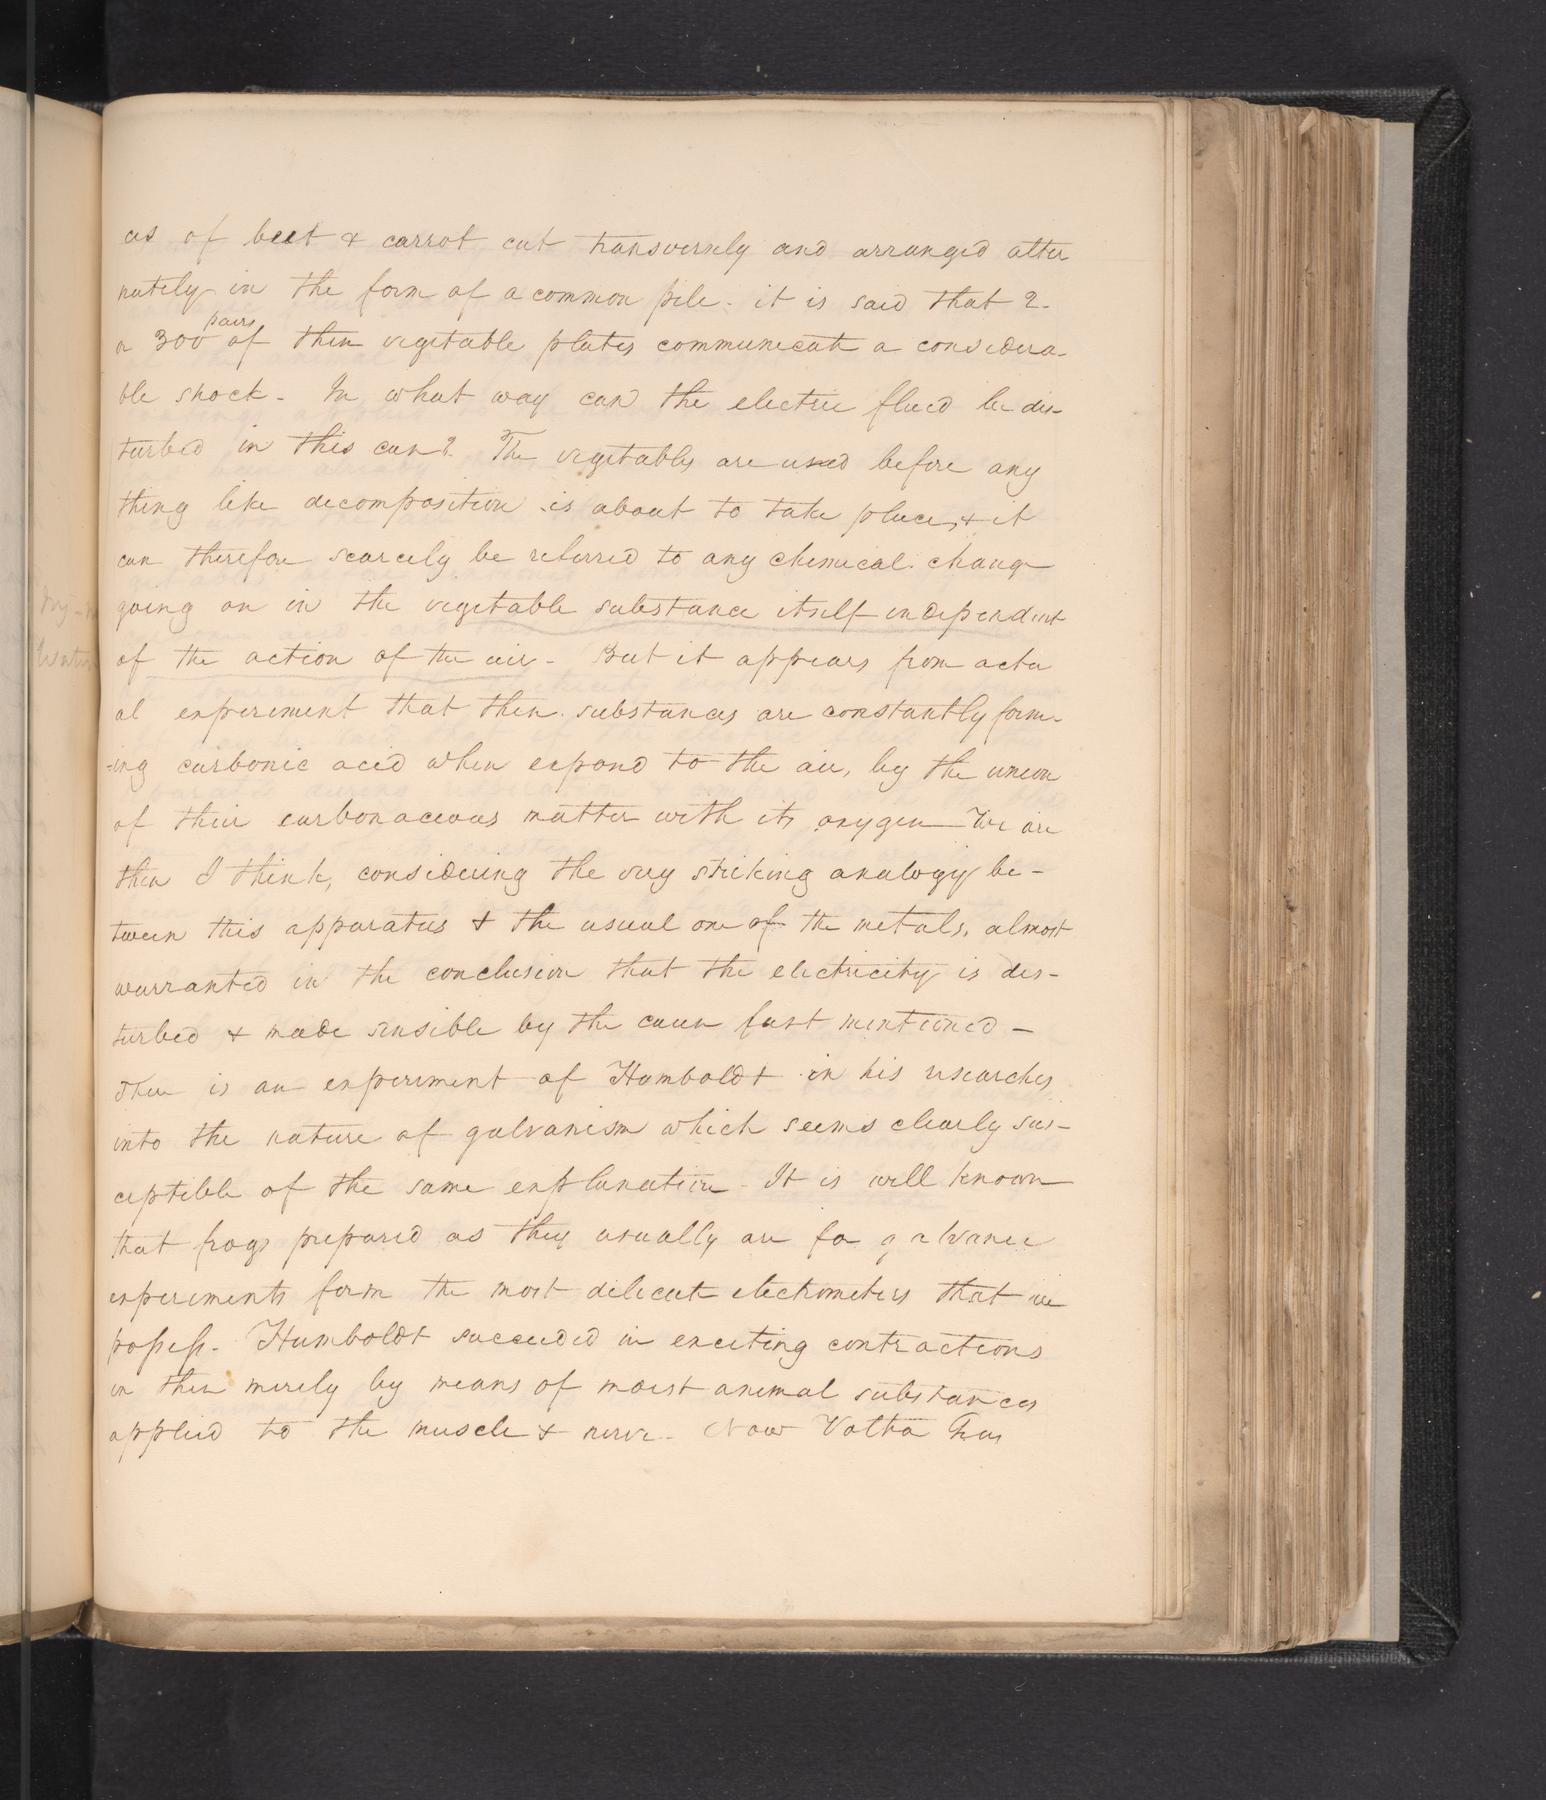 as of beet & carrot cut transversely and arranged alter
nately in the form of a common pile. it is said that 2-
pairs
or 300 of these vegetable plates communicate a considera-
ble shock - In what way can the electric fluid be dis-
turbed in this case? The vegetables are used before any
thing like decomposition is about to take place, & it
can therefore scarcely be referred to any chemical change
going on in the vegetable substance itself independent
of the action of the air - But it appears from actu
al experiment that these substances are constantly form-
-ing carbonic acid when exposed to the air, by the union
of their carbonaceous matter with its oxygen - We are
then I think, considering the very striking analogy be-
tween this apparatus & the usual one of the metals, almost
warranted in the conclusion that the electricity is dis-
turbed & made sensible by the cause just mentioned -
There is an experiment of Humboldt in his researches
into the nature of galvanism which seems clearly sus-
ceptible of the same explanation - It is well known
that frogs prepared as they usually are for galvanic
experiments form the most delicate electrometers that we
possess. Humboldt succeeded in exciting contractions
in these merely by means of moist animal substances
applied to the muscle & nerve - Now Volta has